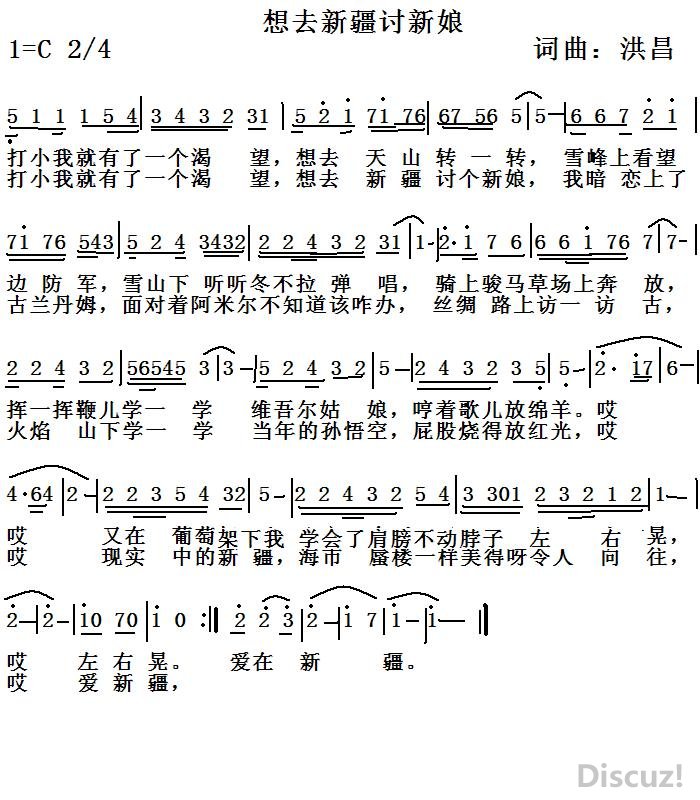 想去新疆讨新娘
1=C 2/4
词曲：洪昌
5 1 1 1 5 4 | 3 4 3 2 31 | 5 2 1 71 76 | 67 56 5 | 5— | 6 6 7 2 1 |
打小我就有了一个渴 望，想去 天山 转 一 转， 雪峰上看望
打小我就有了一个渴 望，想去 新 疆 讨个新娘，我暗 恋上了
71 76 543 | 5 2 4 3432 | 2 2 4 3 2 31 | 1— | 2· 1 7 6 | 6 6 1 76 7 | 7— |
边 防 军，雪山下 听听冬不拉 弹 唱， 骑上骏马草场上奔 放，
古兰丹姆，面对着阿米尔不知道该咋办，丝绸 路上访一 访 古，
2 2 4 3 2 | 56545 3 | 3— | 5 2 4 3 2 | 5— | 2 4 3 2 3 5 | 5— | 2· 17 | 6— |
挥一挥鞭儿学一 学 维吾尔姑 娘，哼着歌儿放绵羊。哎
火焰 山下学一 学 当年的孙悟空，屁股烧得放红光，哎
4·64 | 2— | 2 2 3 5 4 32 | 5— | 2 2 4 3 2 5 4 | 3 301 2 3 2 1 2 | 1— |
哎 又在 葡萄架下我 学会了肩膀不动脖子 左 右 晃，
哎 现实 中的新疆，海市 蜃楼一样美得呀令人 向 往，
2— | 2— | 10 70 | 1 0 :‖ 2 2 3 | 2— | 1 7 | 1— | 1— ‖
哎 左右 晃。 爱在 新 疆。
哎 爱 新 疆，
Discuz!